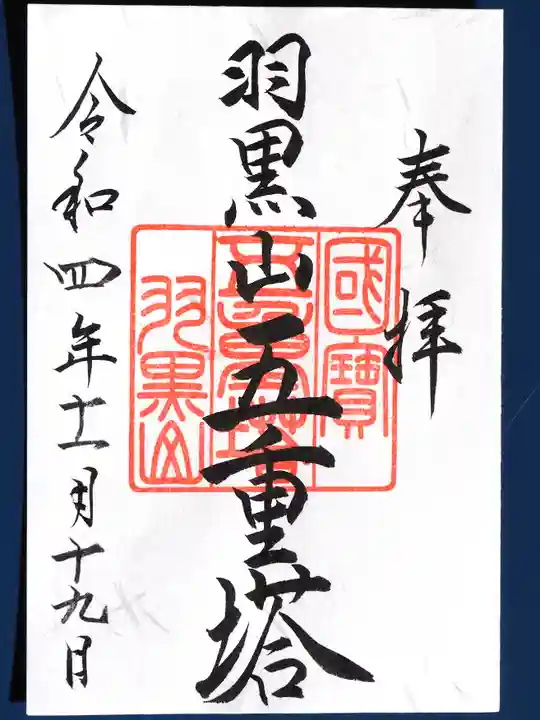 奉拝
羽黒山五重塔
國寶
五重塔
羽黒山
令和四年十一月十九日